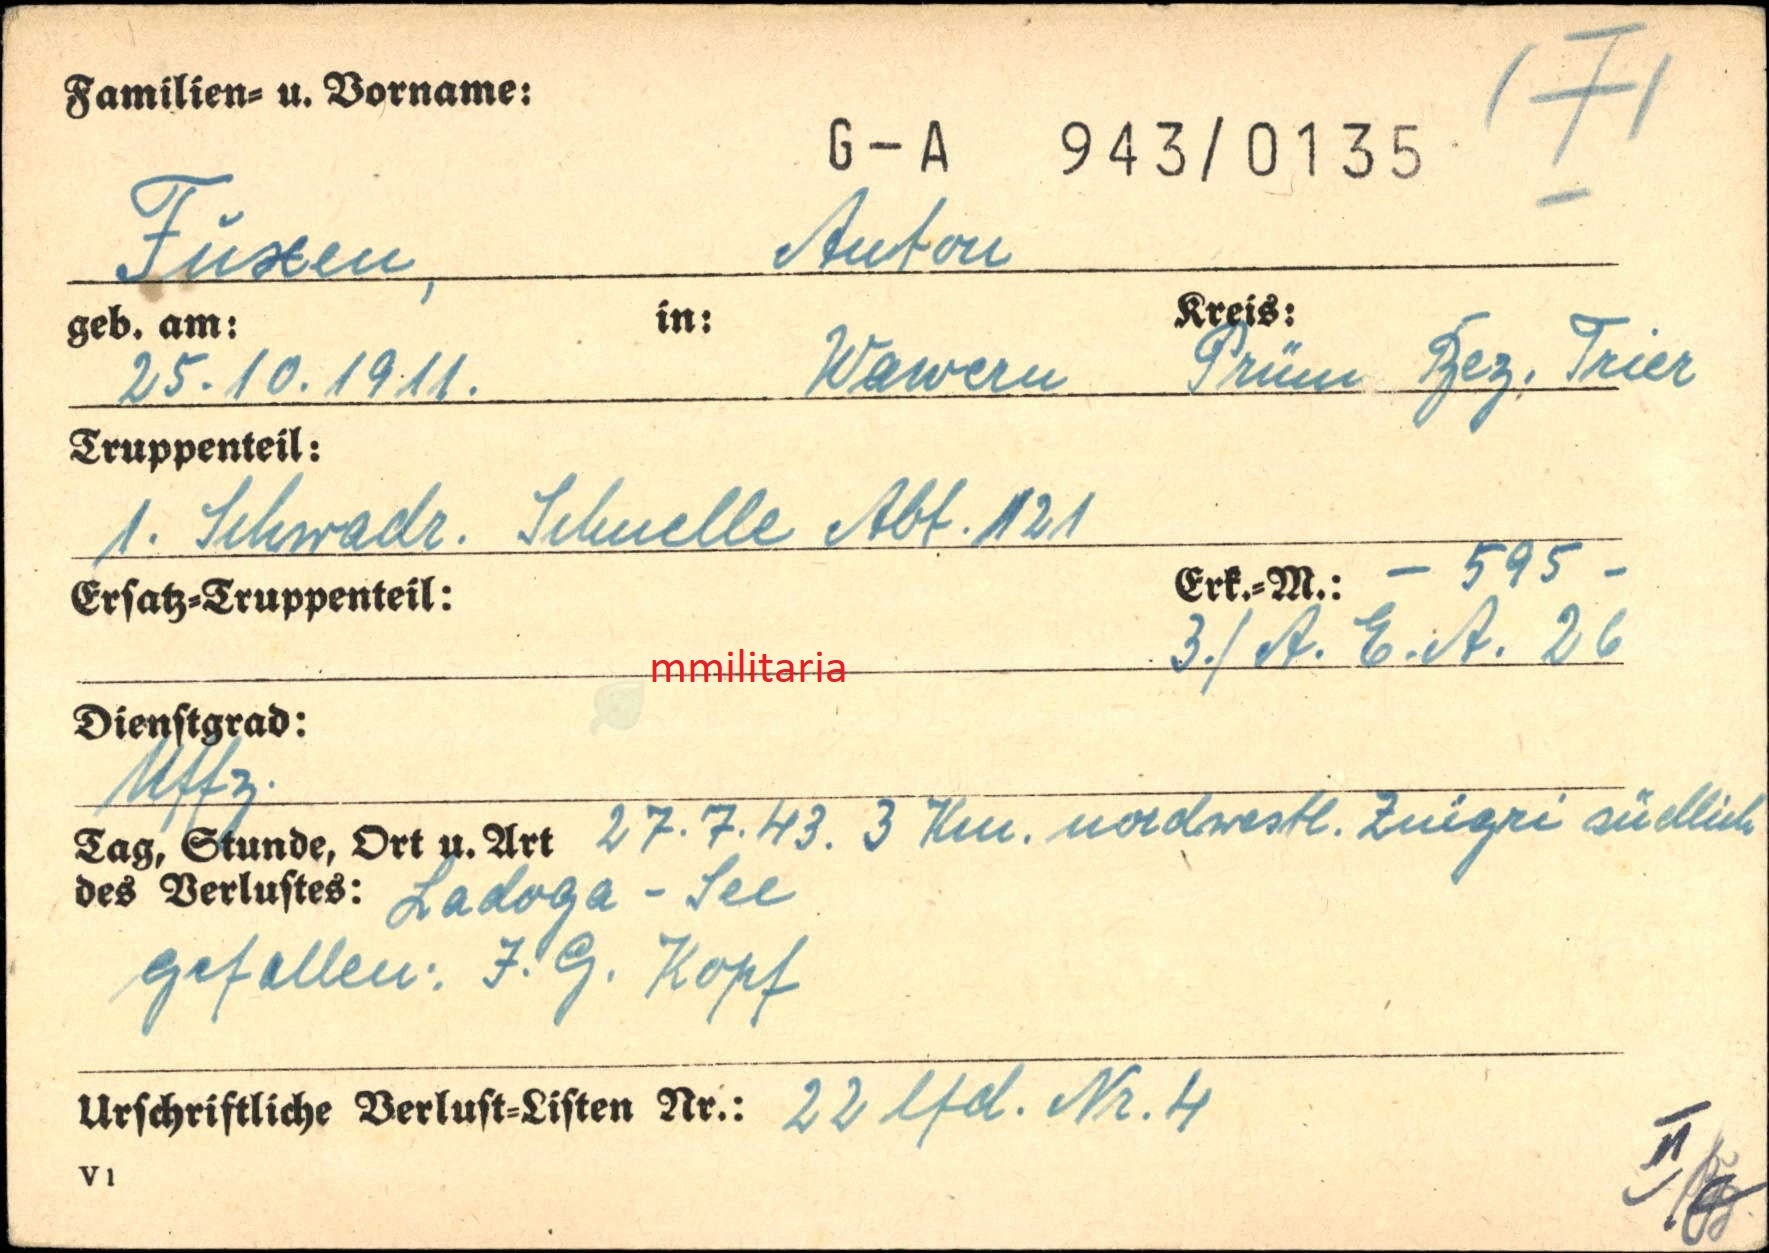 Familien- u. Vorname:
G-A 943/0135
Fuxen, Anton
geb. am: in: Kreis:
25.10.1911. Wawern Prüm Bez. Trier
Truppenteil:
1. Schwadr. Schnelle Abt. 121
Ersatz-Truppenteil: Erk.-M.: - 595 -
3./ A. E. A. 26
mmilitaria
Dienstgrad:
Uffz.
Tag, Stunde, Ort u. Art 27.7.43. 3 Km. nordwestl. Znigri südlich
des Verlustes: Ladoga-See
gefallen: I. G. Kopf
Urschriftliche Verlust-Listen Nr.: 22 lfd. Nr. 4
V1